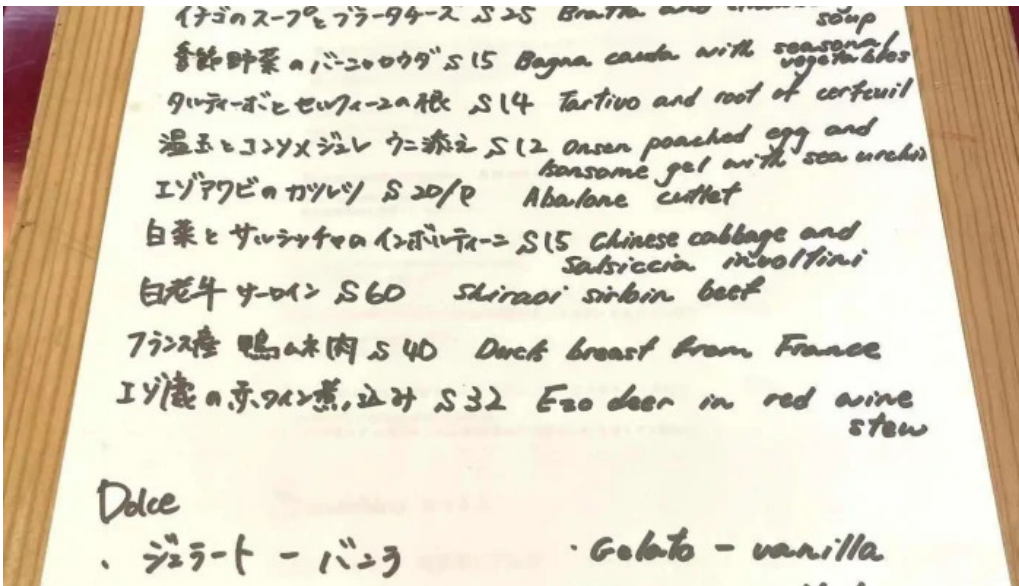 イチゴのスープとブラータチーズ S 25 Bratta and
soup
季節野菜のバーニャカウダ S 15 Bagna cauda with seasonal
vegetables
タルティーボとセルフィーユの根 S 14 Tartivo and root of cerfeuil
温玉とコンソメジュレ ウニ添え S 12 Onsen poached egg and
konsome gel with sea urchin
エゾアワビのカツレツ S 20/P Abalone cutlet
白菜とサルシッチャのインボルティーニ S 15 Chinese cabbage and
Salsiccia involtini
白老牛サーロイン S 60 Shiraoi sirloin beef
フランス産 鴨ムネ肉 S 40 Duck breast from France
エゾ鹿の赤ワイン煮込み S 32 Ezo deer in red wine
stew
Dolce
・ジェラート - バニラ ・Gelato - vanilla